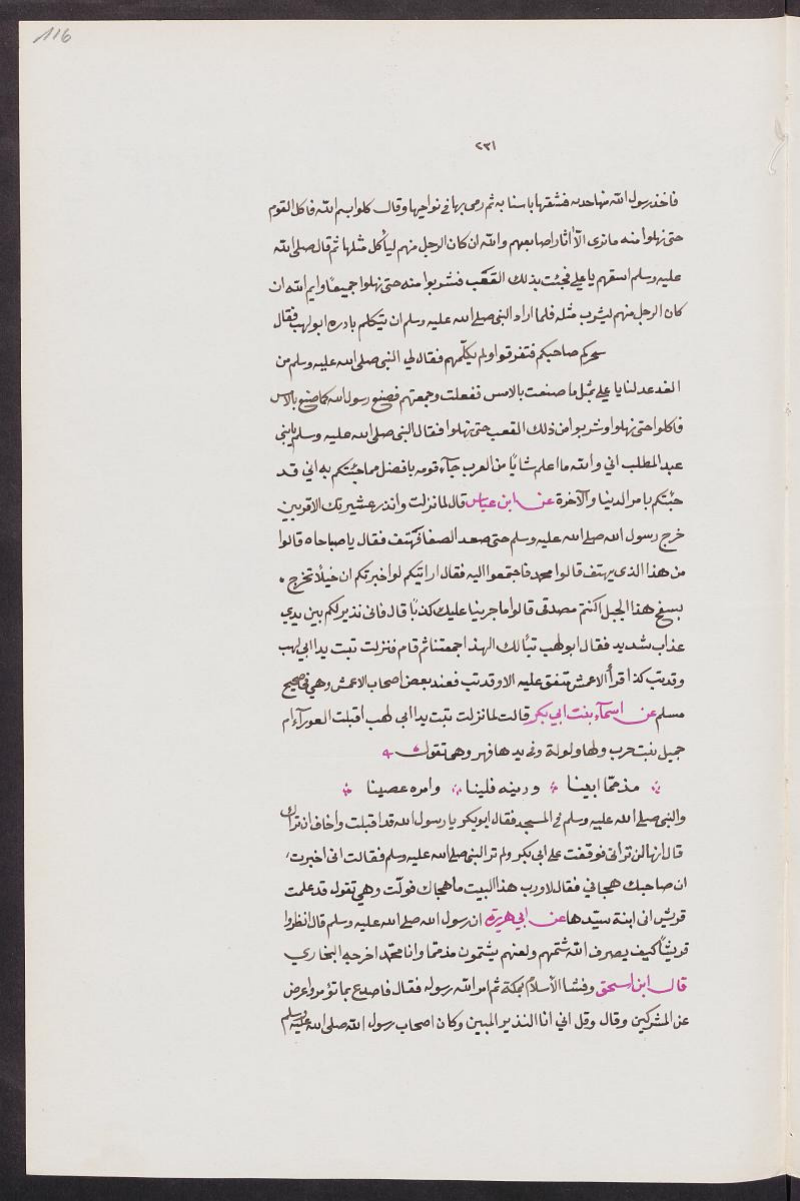 116
٢٣١
فاخذ رسول الله منها حديه فشقها باسنا به ثم رمى بها في نواحيها وقال كلوا بسم الله فاكل القوم
حتى نهلوا منه ما نرى الا اثار اصابعهم والله ان كان الرجل منهم لياكل مثلها ثم قال صلى الله
عليه وسلم اسقهم يا علي فجئت بذلك القعب فشربوا منه حتى نهلوا جميعا وايم الله ان
كان الرجل منهم ليشرب مثله فلما اراد النبي صلى الله عليه وسلم ان يتكلم بادره ابو لهب فقال
سحركم صاحبكم فتفرقوا ولم يكلمهم فقال لي النبي صلى الله عليه وسلم من
الغد عد لنا يا علي بمثل ما صنعت بالامس ففعلت وجمعتهم فصنع رسول الله كما صنع بالامس
فاكلوا حتى نهلوا وشربوا من ذلك القعب حتى نهلوا فقال النبي صلى الله عليه وسلم يا بني
عبد المطلب اني والله ما اعلم شابًا من العرب جآء قومه بافضل مما جئتكم به اني قد
جئتكم بامر الدنيا والآخرة عن ابن عباس قال لما نزلت وانذر عشيرتك الاقربين
خرج رسول الله صلى الله عليه وسلم حتى صعد الصفا فهتف فقال يا صباحاه قالوا
من هذا الذي يهتف قالوا محمد فاجتمعوا اليه فقال ارايتكم لو اخبرتكم ان خيلًا تخرج
بسفح هذا الجبل اكنتم مصدقى قالوا ما جربنا عليك كذبًا قال فانى نذير لكم بين يدي
عذاب شديد فقال ابو لهب تبًا لك الهذا جمعتنا ثم قام فنزلت تبت يدا ابي لهب
وقد تب كذا قرأ الاعمش متفق عليه الا وقد تب فعند بعض اصحاب الاعمش وهي في صحيح
مسلم عن اسمآء بنت ابي بكر قالت لما نزلت تبت يدا ابى لهب اقبلت العورآء ام
جميل بنت حرب ولها ولولة وفي يدها فهر وهى تقول
مذممًا ابينا ودينه قلينا وامره عصينا
والنبي صلى الله عليه وسلم في المسجد فقال ابو بكر يا رسول الله قد اقبلت واخاف ان تراك
قال انها لن ترانى فوقفت على ابى بكر ولم تر النبي صلى الله عليه وسلم فقالت انى اخبرت
ان صاحبك هجاني فقال لا ورب هذا البيت ما هجاك فولّت وهي تقول قد علمت
قريش انى ابنة سيّدها عن ابي هريرة ان رسول الله صلى الله عليه وسلم قال انظروا
قريشًا كيف يصرف الله شتمهم ولعنهم يشتمون مذممًا وانا محمّد اخرجه البخاري
قال ابن اسحق وفشا الاسلام بمكة ثم امر الله رسوله فقال فاصدع بما تؤمر واعرض
عن المشركين وقال وقل اني انا النذير المبين وكان اصحاب رسول الله صلى الله عليه وسلم